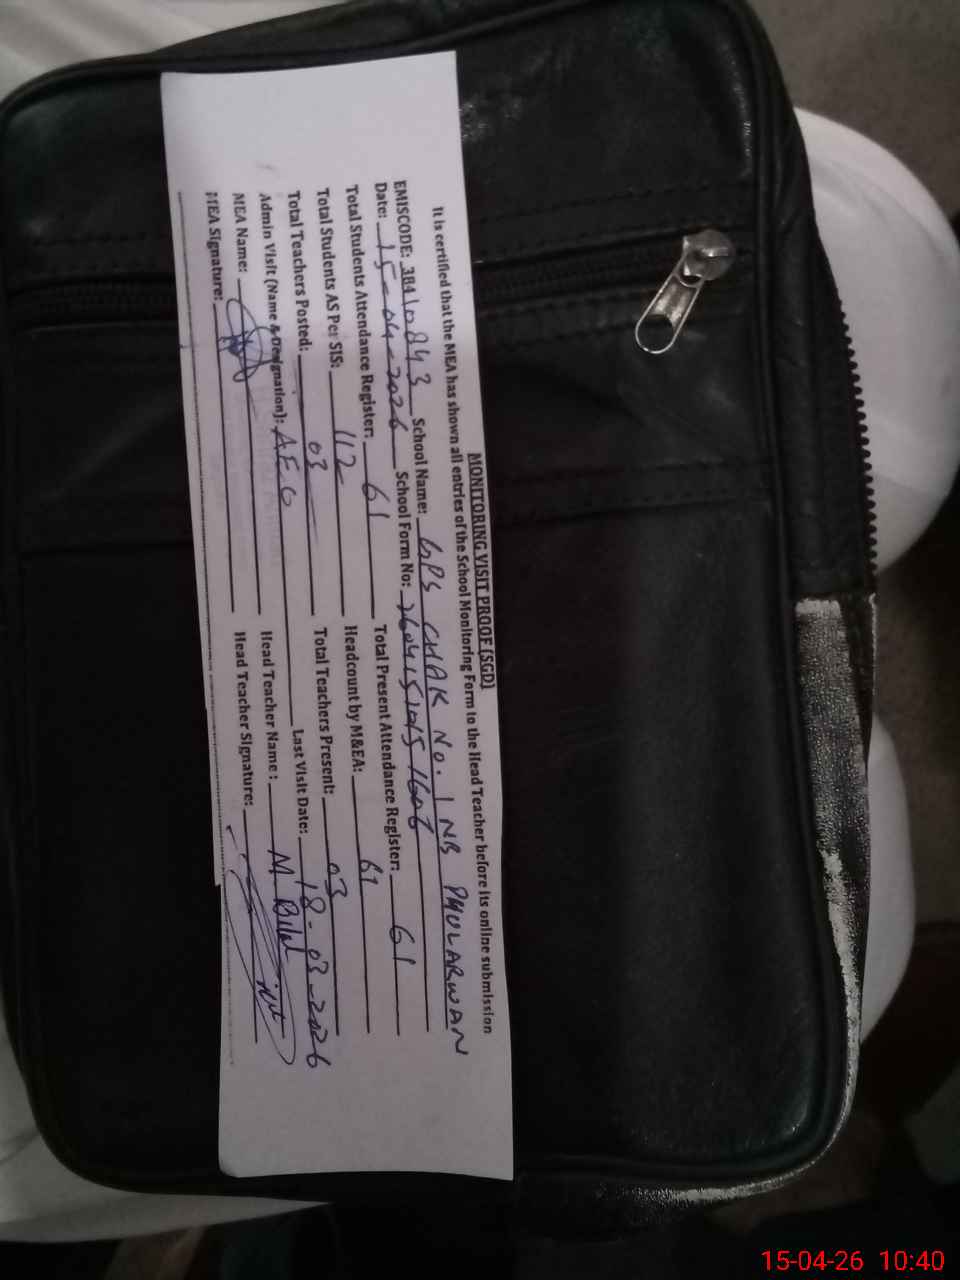 MONITORING VISIT PROOF (SGD)
It is certified that the MEA has shown all entries of the School Monitoring Form to the Head Teacher before its online submission
EMISCODE: 38410843 School Name: GPS CHAK No. 1 NB PHULARWAN
Date: 15-04-2026 School Form No:
Total Students Attendance Register: 61 Total Present Attendance Register: 61
Total Students AS Per SIS: 112 Headcount by M&EA: 61
Total Teachers Posted: 03 Total Teachers Present: 03
Admin Visit (Name & Designation): AEO Last Visit Date: 18-03-2026
MEA Name: Head Teacher Name: M. Bilal
MEA Signature: Head Teacher Signature:
15-04-26 10:40